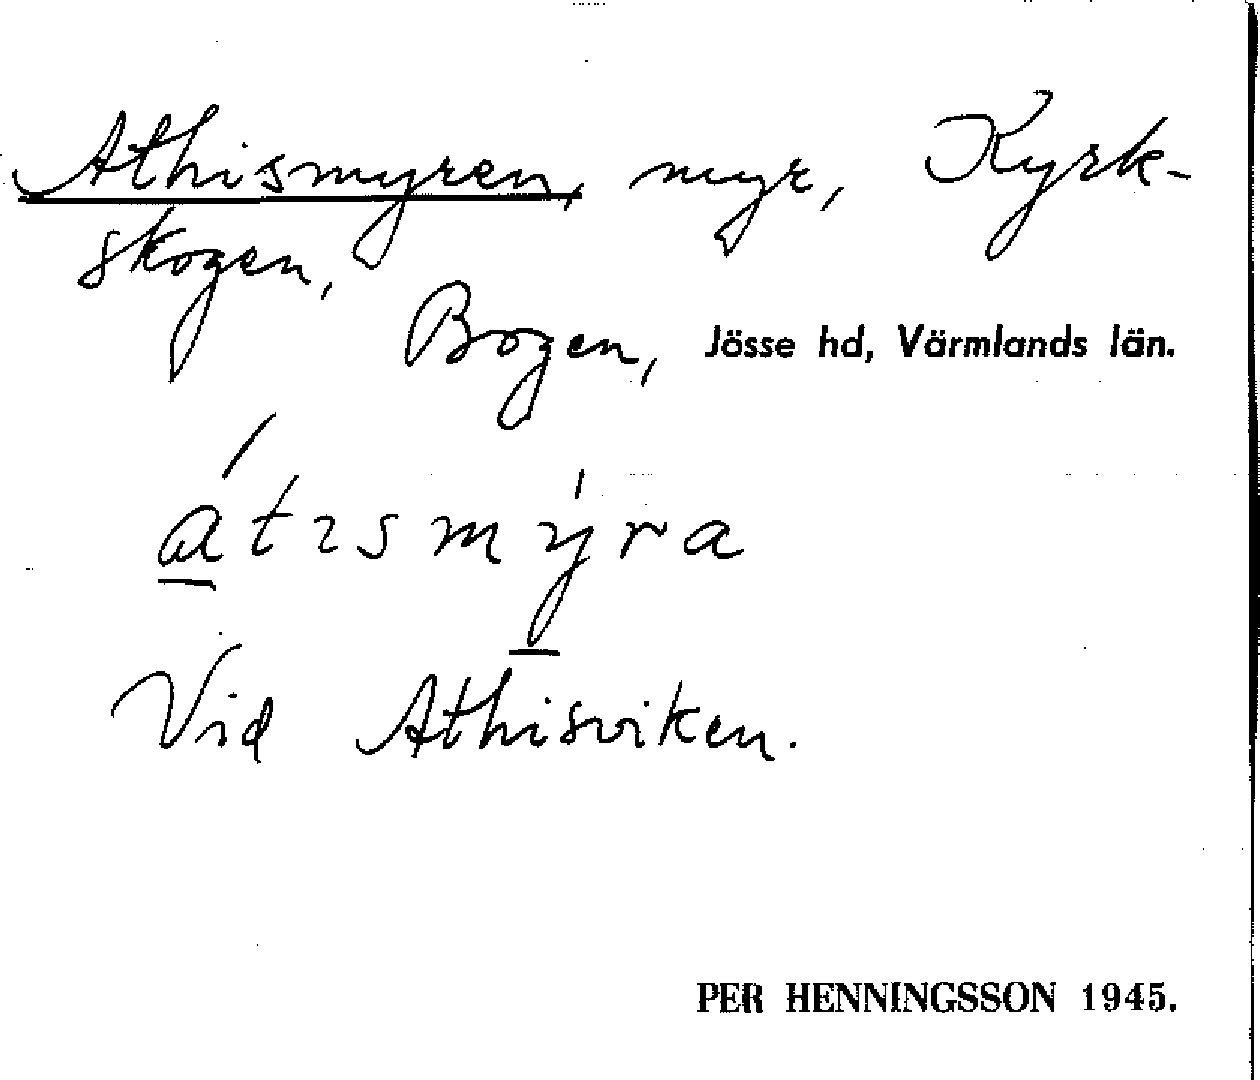 Athismyren, myr, Kyrk-
skogen,
Bogen, Jösse hd, Värmlands län.
átısmýra
Vid Athisviken.
PER HENNINGSSON 1945.